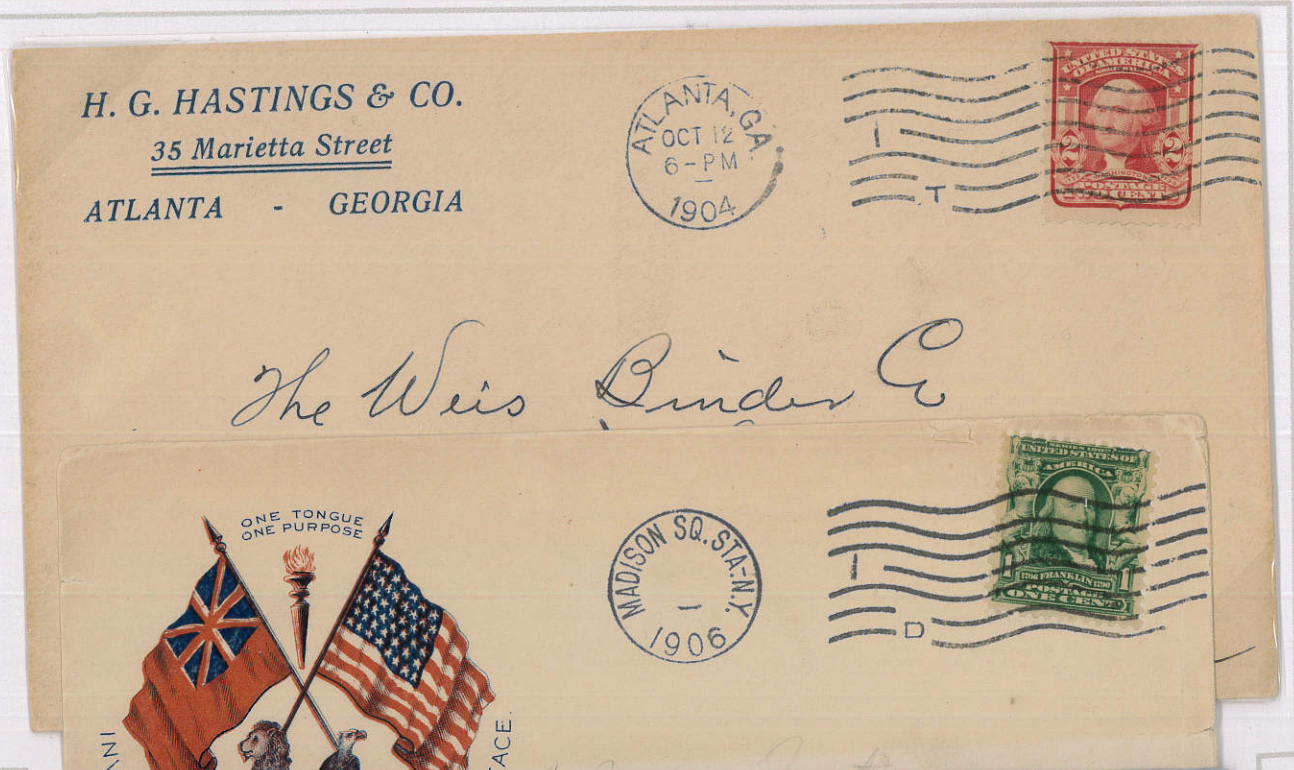 H. G. HASTINGS & CO.
35 Marietta Street
ATLANTA - GEORGIA
ATLANTA, GA.
OCT 12
6-PM
1904
I
T
UNITED STATES
OF AMERICA
2 2
WASHINGTON
POSTAGE
The Weis Binder Co
ONE TONGUE
ONE PURPOSE
MADISON SQ. STA-N.Y.
1906
I
D
SERIES 1902
UNITED STATES OF
AMERICA
1 1
1706 FRANKLIN 1790
POSTAGE
ONE CENT